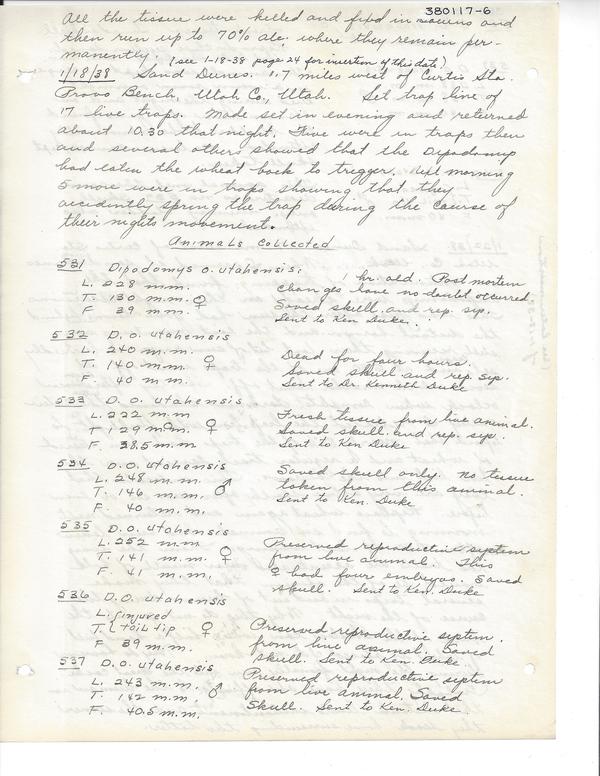 380117-6
All the tissue were killed and fixed in Bouins and
then run up to 70% alc. where they remain per-
manently. (see 1-18-38 page 24 for insertion of this date)
1/18/38 Sand Dunes. 1.7 miles west of Curtis Sta.
Provo Bench, Utah Co., Utah. Set trap line of
17 live traps. Made set in evening and returned
about 10.30 that night. Five were in traps then
and several others showed that the Dipodomys
had eaten the wheat back to trigger. Next morning
5 more were in traps showing that they
accidently spring the trap during the course of
their nights movement.
Animals Collected
531 Dipodomys o. utahensis.
L. 228 m.m.
T. 130 m.m. ♀
F 39 mm.
1 hr. old. Post mortem
changes have no doubt occurred
Saved skull and rep. sys.
Sent to Ken Duke.
532 D. o. utahensis
L. 240 m.m.
T. 140 m.m. ♀
F. 40 m.m.
Dead for four hours.
Saved skull and rep. sys.
Sent to Dr. Kenneth Duke
533 D. o. utahensis
L. 222 m.m
T 129 m.m. ♀
F. 38.5 m.m
Fresh tissue from live animal.
Saved skull and rep. sys.
Sent to Ken Duke
534 D.O. utahensis
L. 248 m.m.
T. 146 m.m. ♂
F. 40 m.m.
Saved skull only. No tissue
taken from this animal.
Sent to Ken. Duke
535 D.O. utahensis
L. 252 m.m
T. 141 m.m. ♀
F. 41 m.m.
Preserved reproductive system
from live animal. This
♀ had four embryos. Saved
skull. Sent to Ken. Duke
536 D.O. utahensis
L. { injured
T. { tail tip ♀
F 39 m.m.
Preserved reproductive system.
from live animal. Saved
skull. Sent to Ken. Duke.
537 D.O. utahensis
L. 243 m.m. ♂
T. 142 m.m.
F. 40.5 m.m.
Preserved reproductive system
from live animal. Saved
skull. Sent to Ken. Duke.